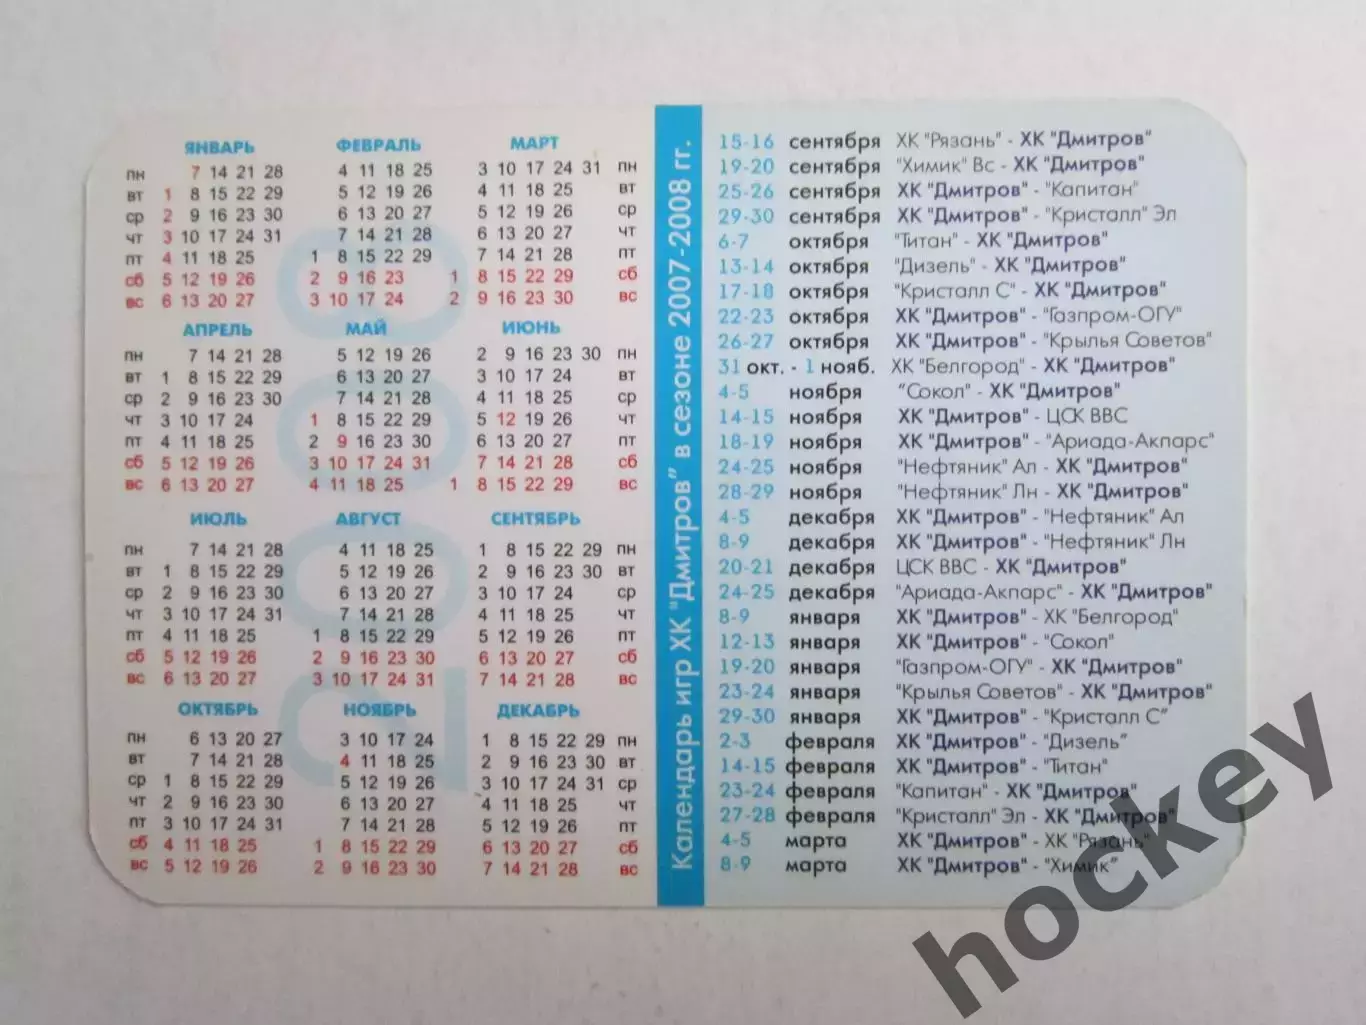 ЯНВАРЬ ФЕВРАЛЬ МАРТ
пн 7 14 21 28 4 11 18 25 3 10 17 24 31 пн
вт 1 8 15 22 29 5 12 19 26 4 11 18 25 вт
ср 2 9 16 23 30 6 13 20 27 5 12 19 26 ср
чт 3 10 17 24 31 7 14 21 28 6 13 20 27 чт
пт 4 11 18 25 1 8 15 22 29 7 14 21 28 пт
сб 5 12 19 26 2 9 16 23 1 8 15 22 29 сб
вс 6 13 20 27 3 10 17 24 2 9 16 23 30 вс
АПРЕЛЬ МАЙ ИЮНЬ
пн 7 14 21 28 5 12 19 26 2 9 16 23 30 пн
вт 1 8 15 22 29 6 13 20 27 3 10 17 24 вт
ср 2 9 16 23 30 7 14 21 28 4 11 18 25 ср
чт 3 10 17 24 1 8 15 22 29 5 12 19 26 чт
пт 4 11 18 25 2 9 16 23 30 6 13 20 27 пт
сб 5 12 19 26 3 10 17 24 31 7 14 21 28 сб
вс 6 13 20 27 4 11 18 25 1 8 15 22 29 вс
ИЮЛЬ АВГУСТ СЕНТЯБРЬ
пн 7 14 21 28 4 11 18 25 1 8 15 22 29 пн
вт 1 8 15 22 29 5 12 19 26 2 9 16 23 30 вт
ср 2 9 16 23 30 6 13 20 27 3 10 17 24 ср
чт 3 10 17 24 31 7 14 21 28 4 11 18 25 чт
пт 4 11 18 25 1 8 15 22 29 5 12 19 26 пт
сб 5 12 19 26 2 9 16 23 30 6 13 20 27 сб
вс 6 13 20 27 3 10 17 24 31 7 14 21 28 вс
ОКТЯБРЬ НОЯБРЬ ДЕКАБРЬ
пн 6 13 20 27 3 10 17 24 1 8 15 22 29 пн
вт 7 14 21 28 4 11 18 25 2 9 16 23 30 вт
ср 1 8 15 22 29 5 12 19 26 3 10 17 24 31 ср
чт 2 9 16 23 30 6 13 20 27 4 11 18 25 чт
пт 3 10 17 24 31 7 14 21 28 5 12 19 26 пт
сб 4 11 18 25 1 8 15 22 29 6 13 20 27 сб
вс 5 12 19 26 2 9 16 23 30 7 14 21 28 вс
2008
Календарь игр ХК "Дмитров" в сезоне 2007-2008 гг.
15-16 сентября ХК "Рязань" - ХК "Дмитров"
19-20 сентября "Химик" Вс - ХК "Дмитров"
25-26 сентября ХК "Дмитров" - "Капитан"
29-30 сентября ХК "Дмитров" - "Кристалл" Эл
6-7 октября "Титан" - ХК "Дмитров"
13-14 октября "Дизель" - ХК "Дмитров"
17-18 октября "Кристалл С" - ХК "Дмитров"
22-23 октября ХК "Дмитров" - "Газпром-ОГУ"
26-27 октября ХК "Дмитров" - "Крылья Советов"
31 окт. - 1 нояб. ХК "Белгород" - ХК "Дмитров"
4-5 ноября "Сокол" - ХК "Дмитров"
14-15 ноября ХК "Дмитров" - ЦСК ВВС
18-19 ноября ХК "Дмитров" - "Ариада-Акпарс"
24-25 ноября "Нефтяник" Ал - ХК "Дмитров"
28-29 ноября "Нефтяник" Лн - ХК "Дмитров"
4-5 декабря ХК "Дмитров" - "Нефтяник" Ал
8-9 декабря ХК "Дмитров" - "Нефтяник" Лн
20-21 декабря ЦСК ВВС - ХК "Дмитров"
24-25 декабря "Ариада-Акпарс" - ХК "Дмитров"
8-9 января ХК "Дмитров" - ХК "Белгород"
12-13 января ХК "Дмитров" - "Сокол"
19-20 января "Газпром-ОГУ" - ХК "Дмитров"
23-24 января "Крылья Советов" - ХК "Дмитров"
29-30 января ХК "Дмитров" - "Кристалл С"
2-3 февраля ХК "Дмитров" - "Дизель"
14-15 февраля ХК "Дмитров" - "Титан"
23-24 февраля "Капитан" - ХК "Дмитров"
27-28 февраля "Кристалл" Эл - ХК "Дмитров"
4-5 марта ХК "Дмитров" - ХК "Рязань"
8-9 марта ХК "Дмитров" - "Химик"
hockey